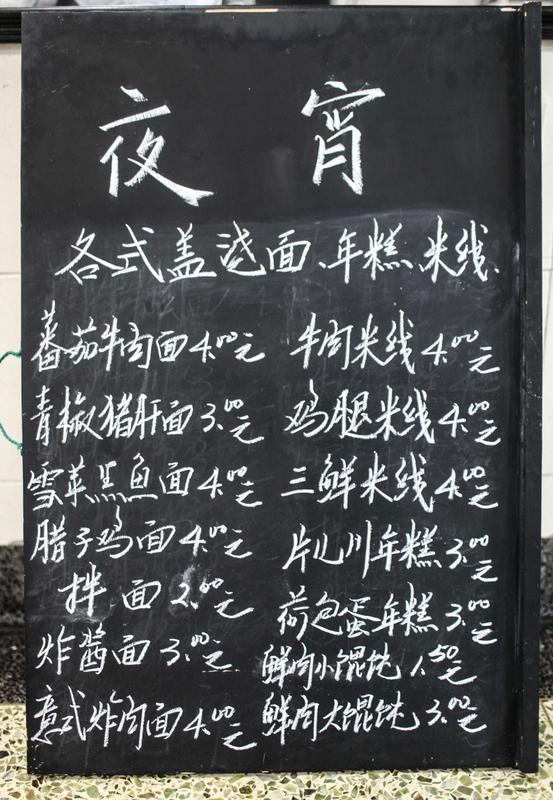 夜宵
各式盖浇面、年糕、米线、
蕃茄牛肉面4.00元
青椒猪肝面3.00元
雪菜黑鱼面4.00元
腊子鸡面4.00元
拌面2.00元
炸酱面3.00元
意式炸肉面4.00元
牛肉米线4.00元
鸡腿米线4.00元
三鲜米线4.00元
片儿川年糕3.00元
荷包蛋年糕3.00元
鲜肉小馄饨1.50元
鲜肉大馄饨3.00元